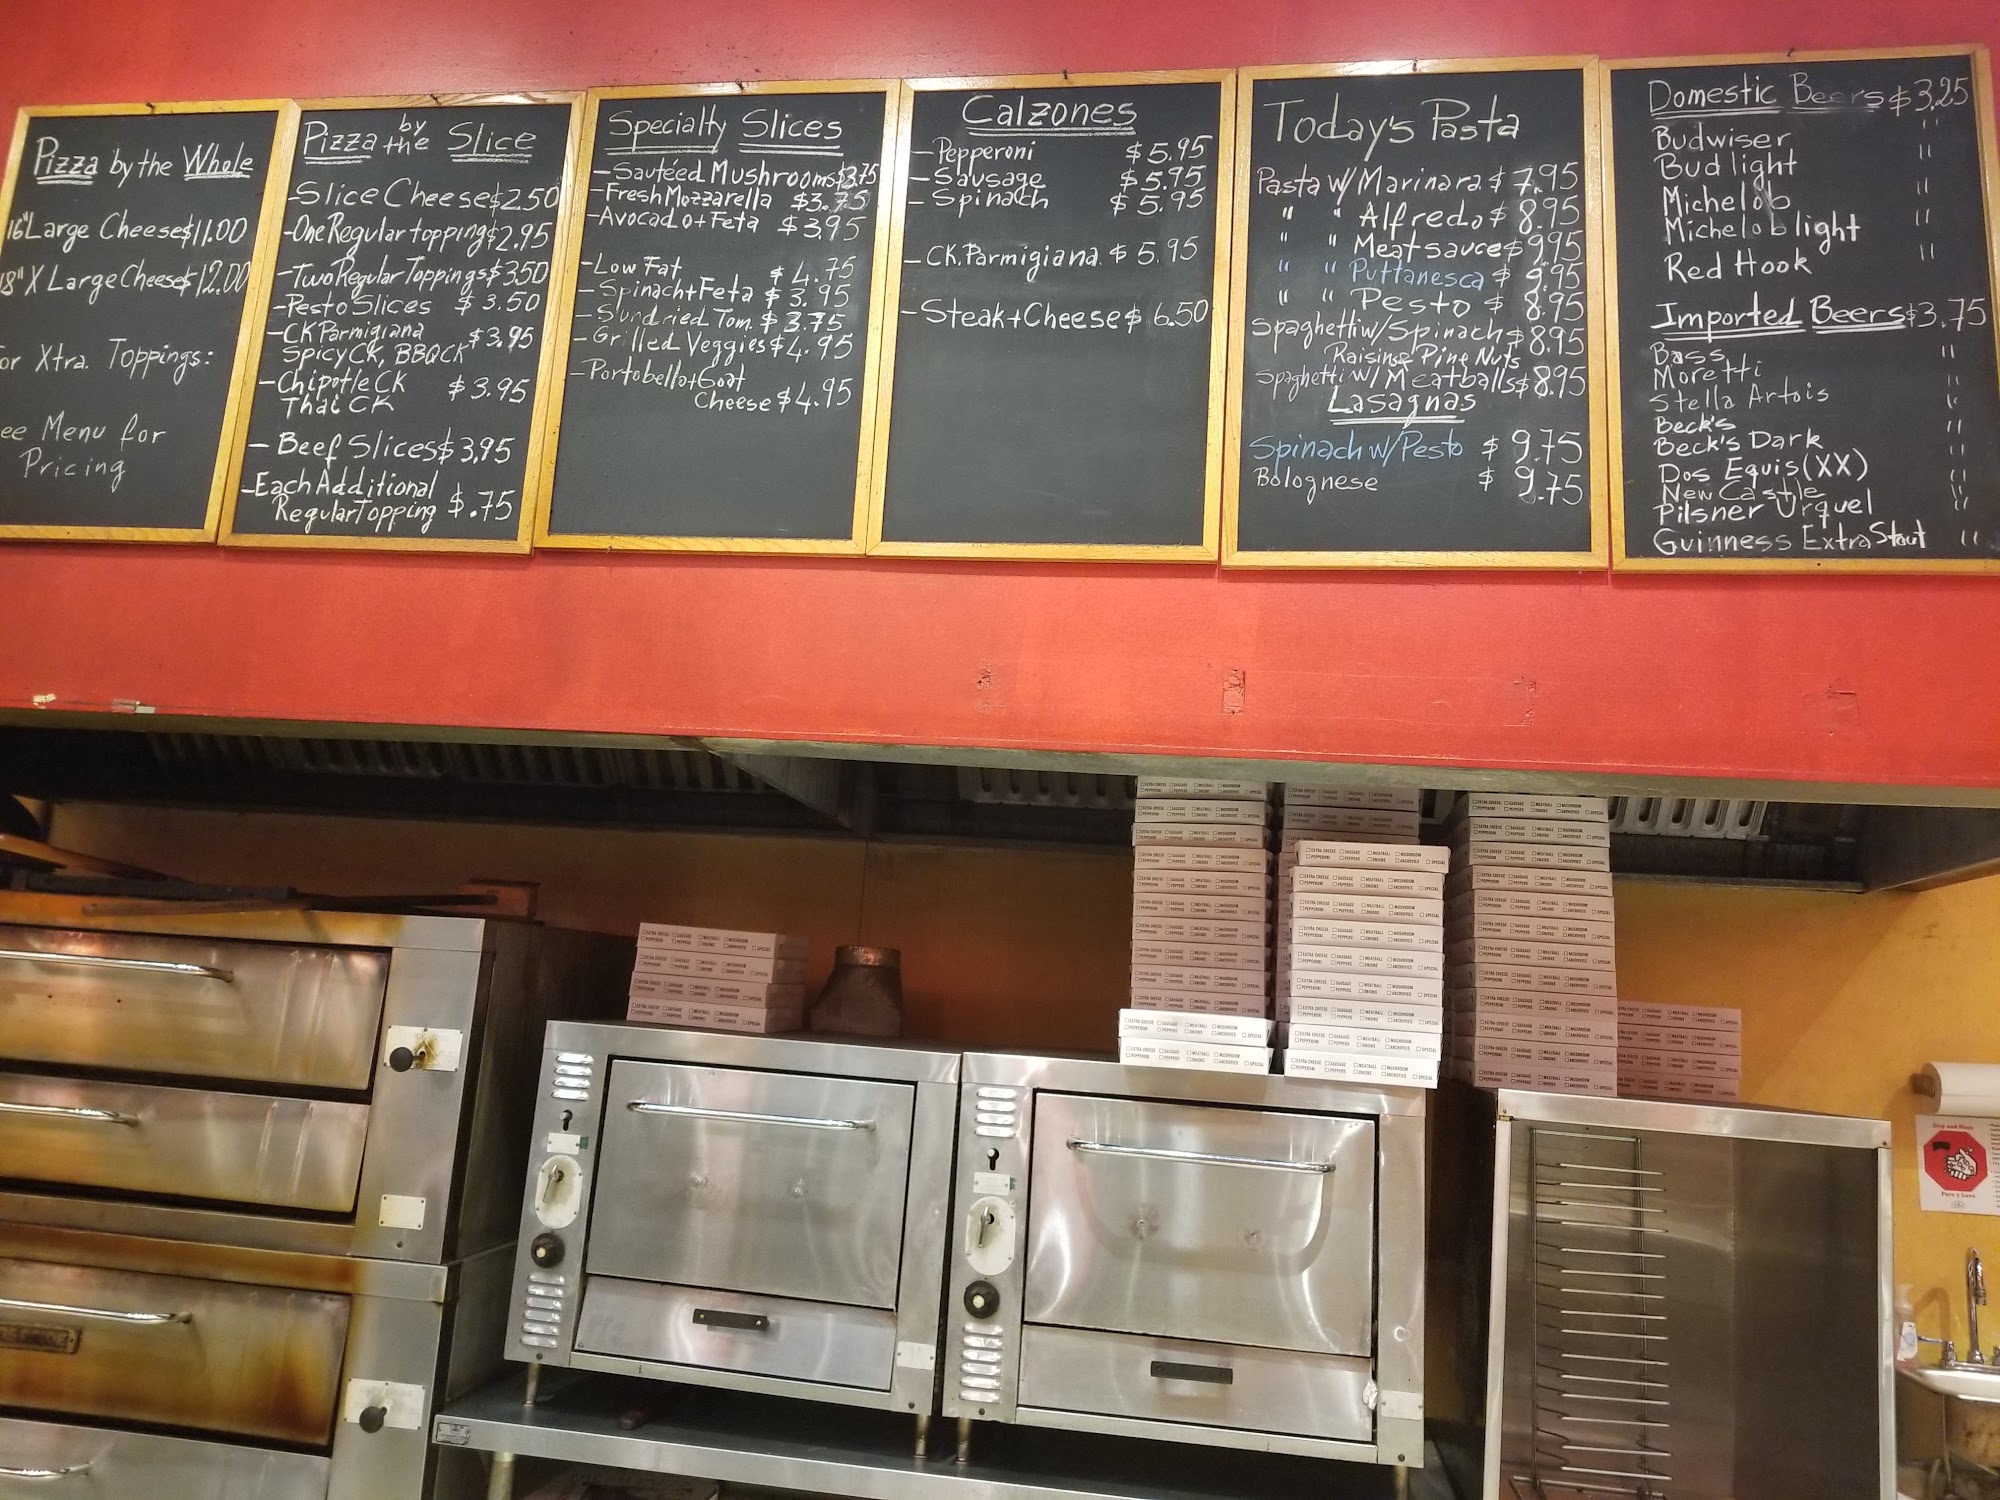 Pizza by the Whole
16" Large Cheese $11.00
18" X Large Cheese $12.00
or Xtra. Toppings:
ee Menu for
Pricing
Pizza by the Slice
- Slice Cheese $2.50
- One Regular topping $2.95
- Two Regular Toppings $3.50
- Pesto Slices $3.50
- CK Parmigiana $3.95
Spicy CK, BBQ CK
- Chipotle CK $3.95
Thai CK
- Beef Slices $3.95
- Each Additional
Regular Topping $.75
Specialty Slices
- Sautéed Mushrooms $3.75
- Fresh Mozzarella $3.75
- Avocado + Feta $3.95
- Low Fat $4.75
- Spinach + Feta $3.95
- Sundried Tom. $3.75
- Grilled Veggies $4.95
- Portobella + Goat
Cheese $4.95
Calzones
- Pepperoni $5.95
- Sausage $5.95
- Spinach $5.95
- CK. Parmigiana $5.95
- Steak + Cheese $6.50
Today's Pasta
Pasta w/ Marinara $7.95
" " Alfredo $8.95
" " Meat sauce $9.95
" " Puttanesca $9.95
" " Pesto $8.95
Spaghetti w/ Spinach $8.95
Raisins & Pine Nuts
Spaghetti w/ Meatballs $8.95
Lasagnas
Spinach w/ Pesto $9.75
Bolognese $9.75
Domestic Beers $3.25
Budwiser "
Bud light "
Michelob "
Michelob light "
Red Hook "
Imported Beers $3.75
Bass "
Moretti "
Stella Artois "
Beck's "
Beck's Dark "
Dos Equis (XX) "
New Castle "
Pilsner Urquel "
Guinness Extra Stout "
EXTRA CHEESE SAUSAGE MEATBALL MUSHROOM
PEPPERONI PEPPERS ONIONS ANCHOVIES SPECIAL
Stop and Wash